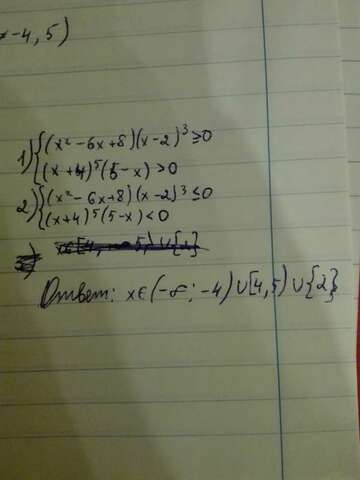 ≠-4, 5)
1) { (x² - 6x + 8)(x - 2)³ ≥ 0
(x + 4)⁵(5 - x) > 0
2) { (x² - 6x + 8)(x - 2)³ ≤ 0
(x + 4)⁵(5 - x) < 0
Ответ: x ∈ (-∞; -4) ∪ [4, 5) ∪ {2}